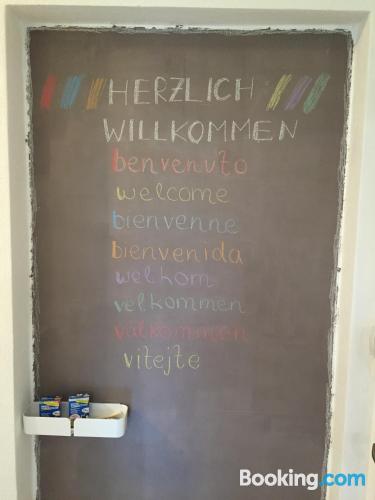 HERZLICH
WILLKOMMEN
benvenuto
welcome
bienvenne
bienvenida
welkom
velkommen
välkommen
vitejte
Booking.com